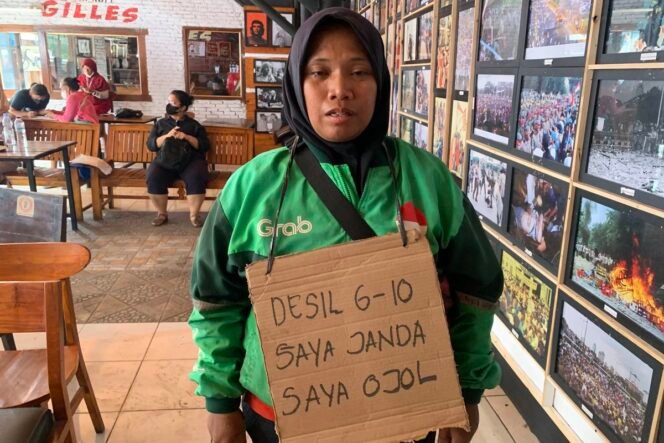 GILLES
Grab
DESIL 6-10
SAYA JANDA
SAYA OJOL